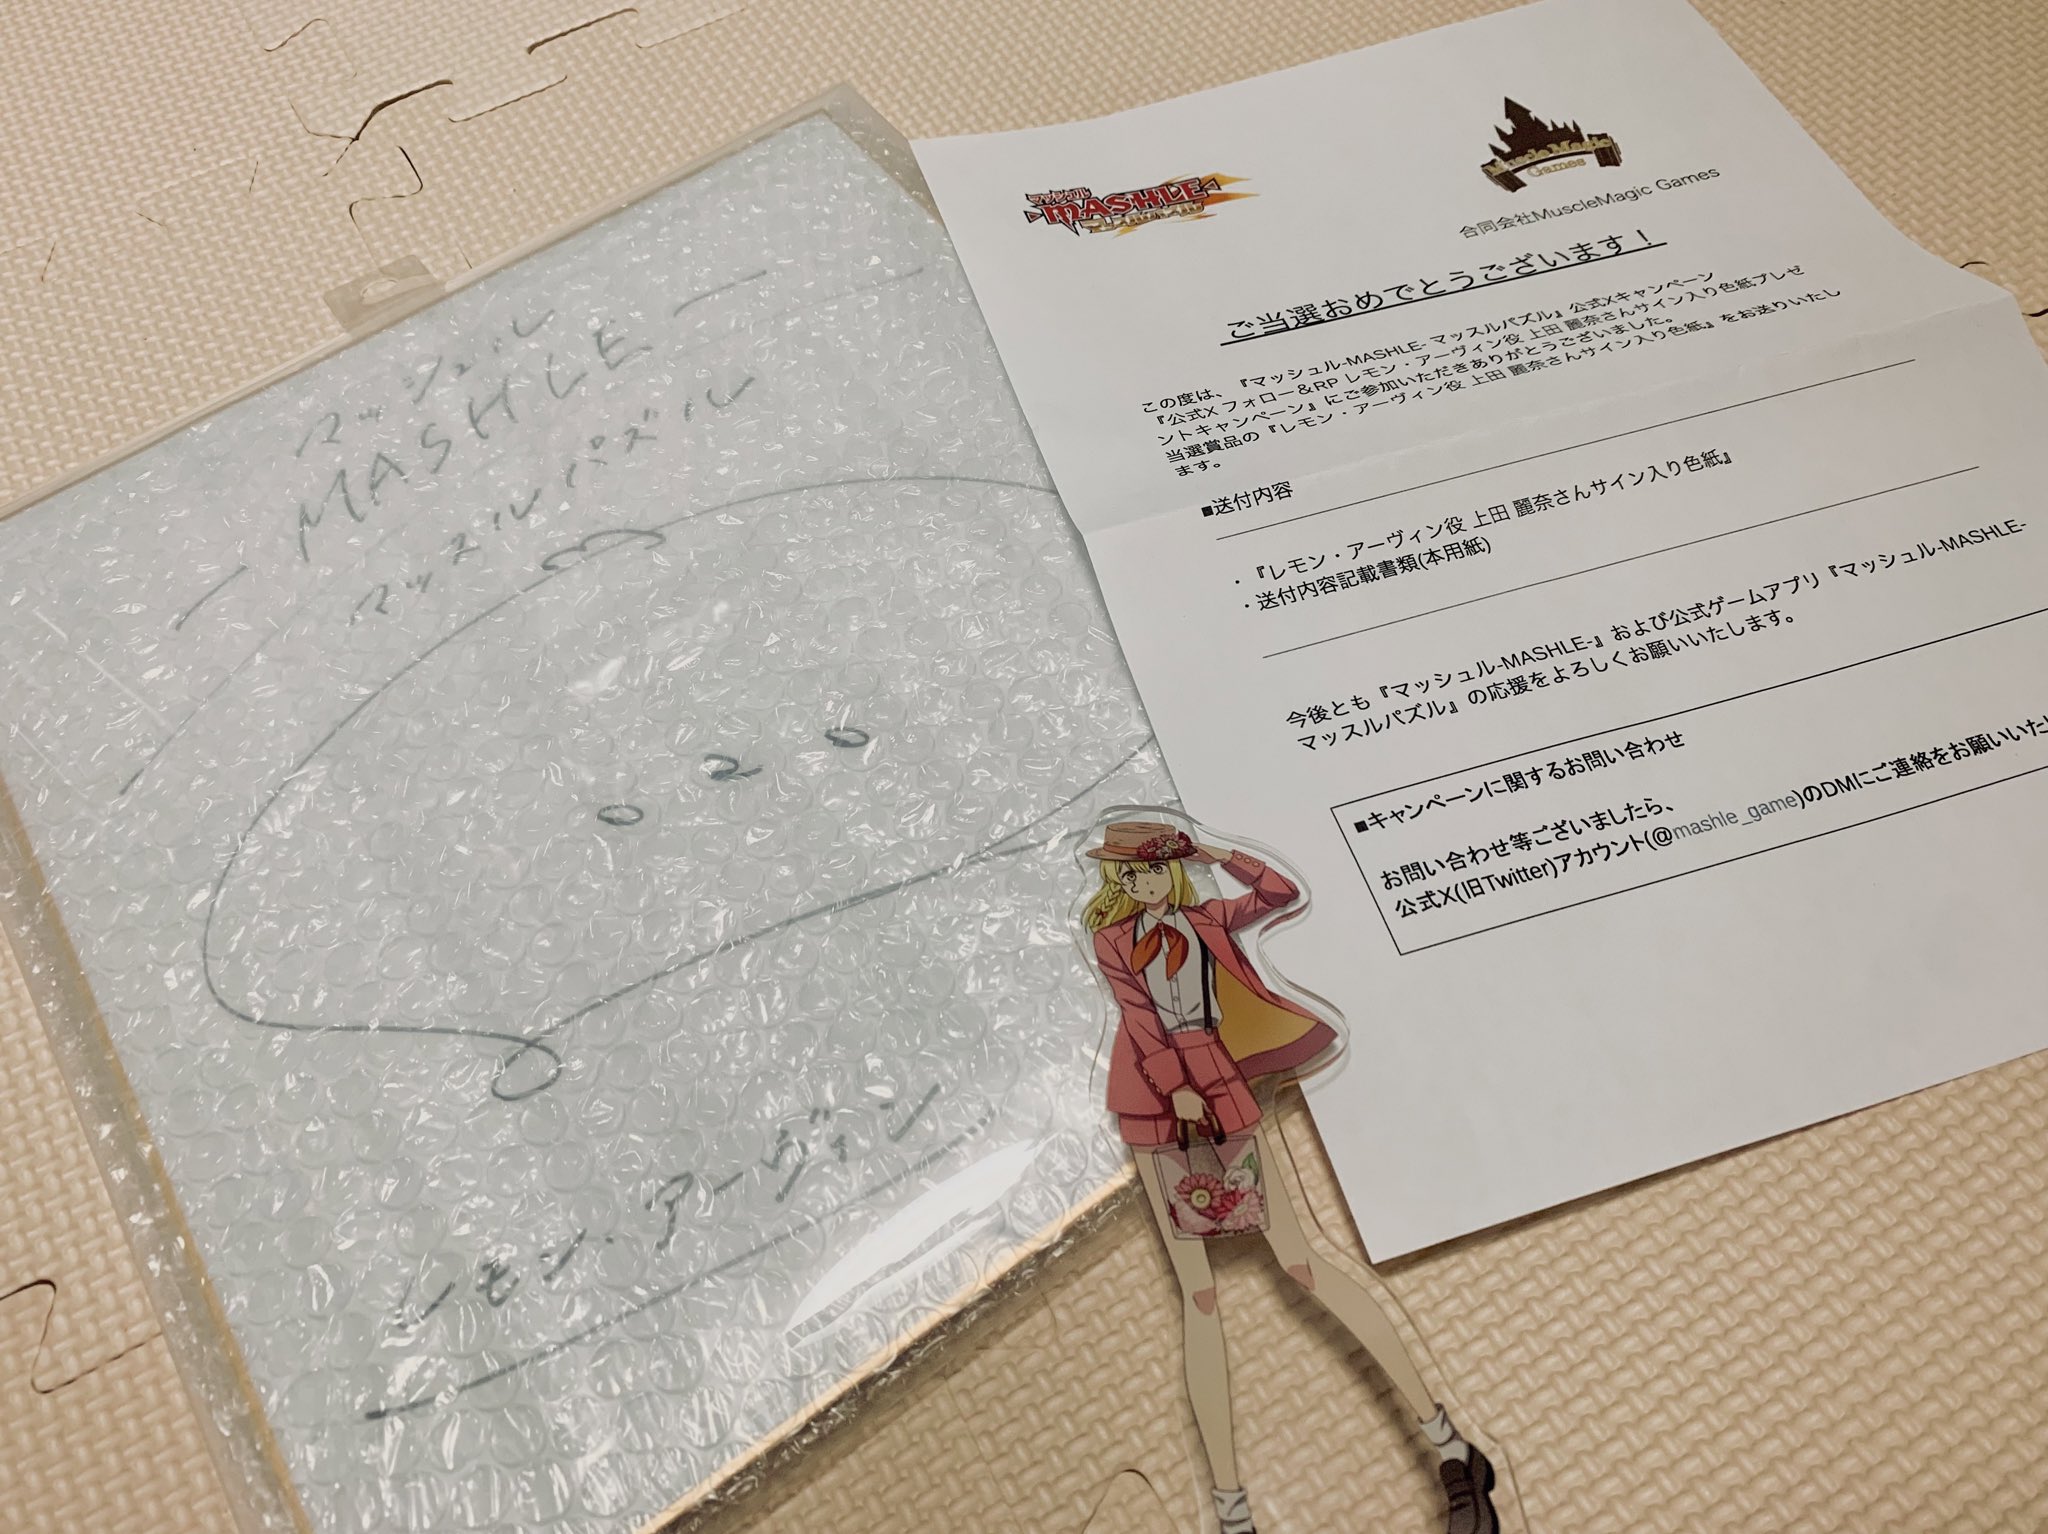 マッシュル
MASHLE
マッスルパズル
レモン・アーヴィン
マッシュル
MASHLE
マッスルパズル
Muscle Magic
Games
合同会社MuscleMagic Games
ご当選おめでとうございます！
この度は、『マッシュル-MASHLE- マッスルパズル』公式Xキャンペーン
『公式X フォロー＆RP レモン・アーヴィン役 上田 麗奈さんサイン入り色紙プレゼ
ントキャンペーン』にご参加いただきありがとうございました。
当選賞品の『レモン・アーヴィン役 上田 麗奈さんサイン入り色紙』をお送りいたし
ます。
■送付内容
・『レモン・アーヴィン役 上田 麗奈さんサイン入り色紙』
・送付内容記載書類(本用紙)
今後とも『マッシュル-MASHLE-』および公式ゲームアプリ『マッシュル-MASHLE-
マッスルパズル』の応援をよろしくお願いいたします。
■キャンペーンに関するお問い合わせ
お問い合わせ等ございましたら、
公式X(旧Twitter)アカウント(@mashle_game)のDMにご連絡をお願いいた